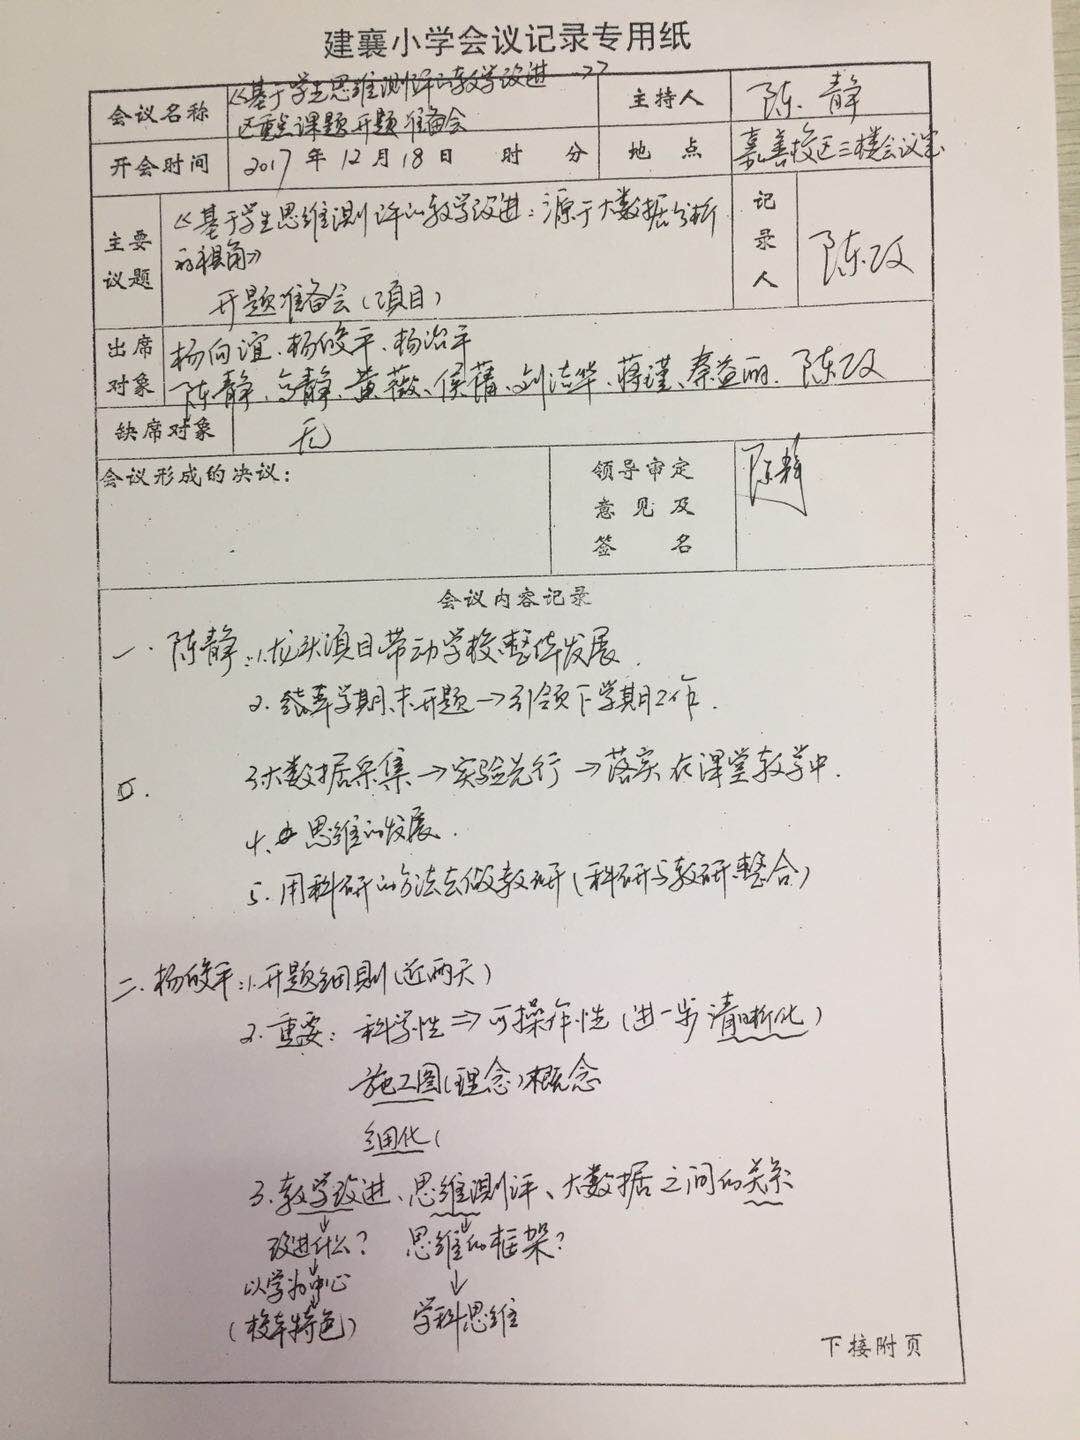 建襄小学会议记录专用纸
会议名称 《基于学生思维测评的教学改进…》 主持人 陈静
区重点课题开题准备会
开会时间 2017年12月18日 时 分 地点 嘉善校区三楼会议室
主要议题 《基于学生思维测评的教学改进:源于大数据分析 记录人 陈
的视角》
开题准备会(项目)
出席对象 杨向谊、杨姣平、杨治平
陈静、高静、黄薇、侯蒨、刘洁华、蒋瑾、秦益丽、陈
缺席对象 无
会议形成的决议: 领导审定意见及签名 陈静
会议内容记录
一. 陈静:1.龙头项目带动学校整体发展.
2.结束学期末开题→引领下学期工作.
3.大数据采集→实验先行→落实在课堂教学中.
4. 思维的发展.
5.用科研的方法去做教研(科研与教研整合)
二.杨姣平:1.开题细则(近两天)
2.重要:科学性⇒可操作性(进一步清晰化)
施工图(理念)概念
细化(
3.教学改进、思维测评、大数据之间的关系
↓ ↓
改进什么? 思维的框架?
↓ ↓
以学为中心
(校本特色) 学科思维
下接附页